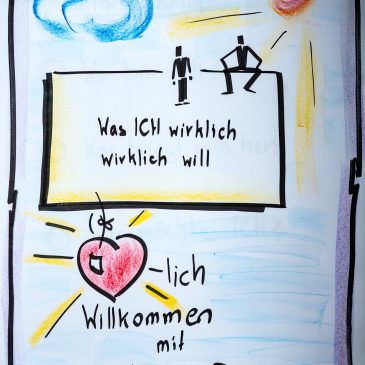 Was ICH wirklich
wirklich will
-lich
Willkommen
mit